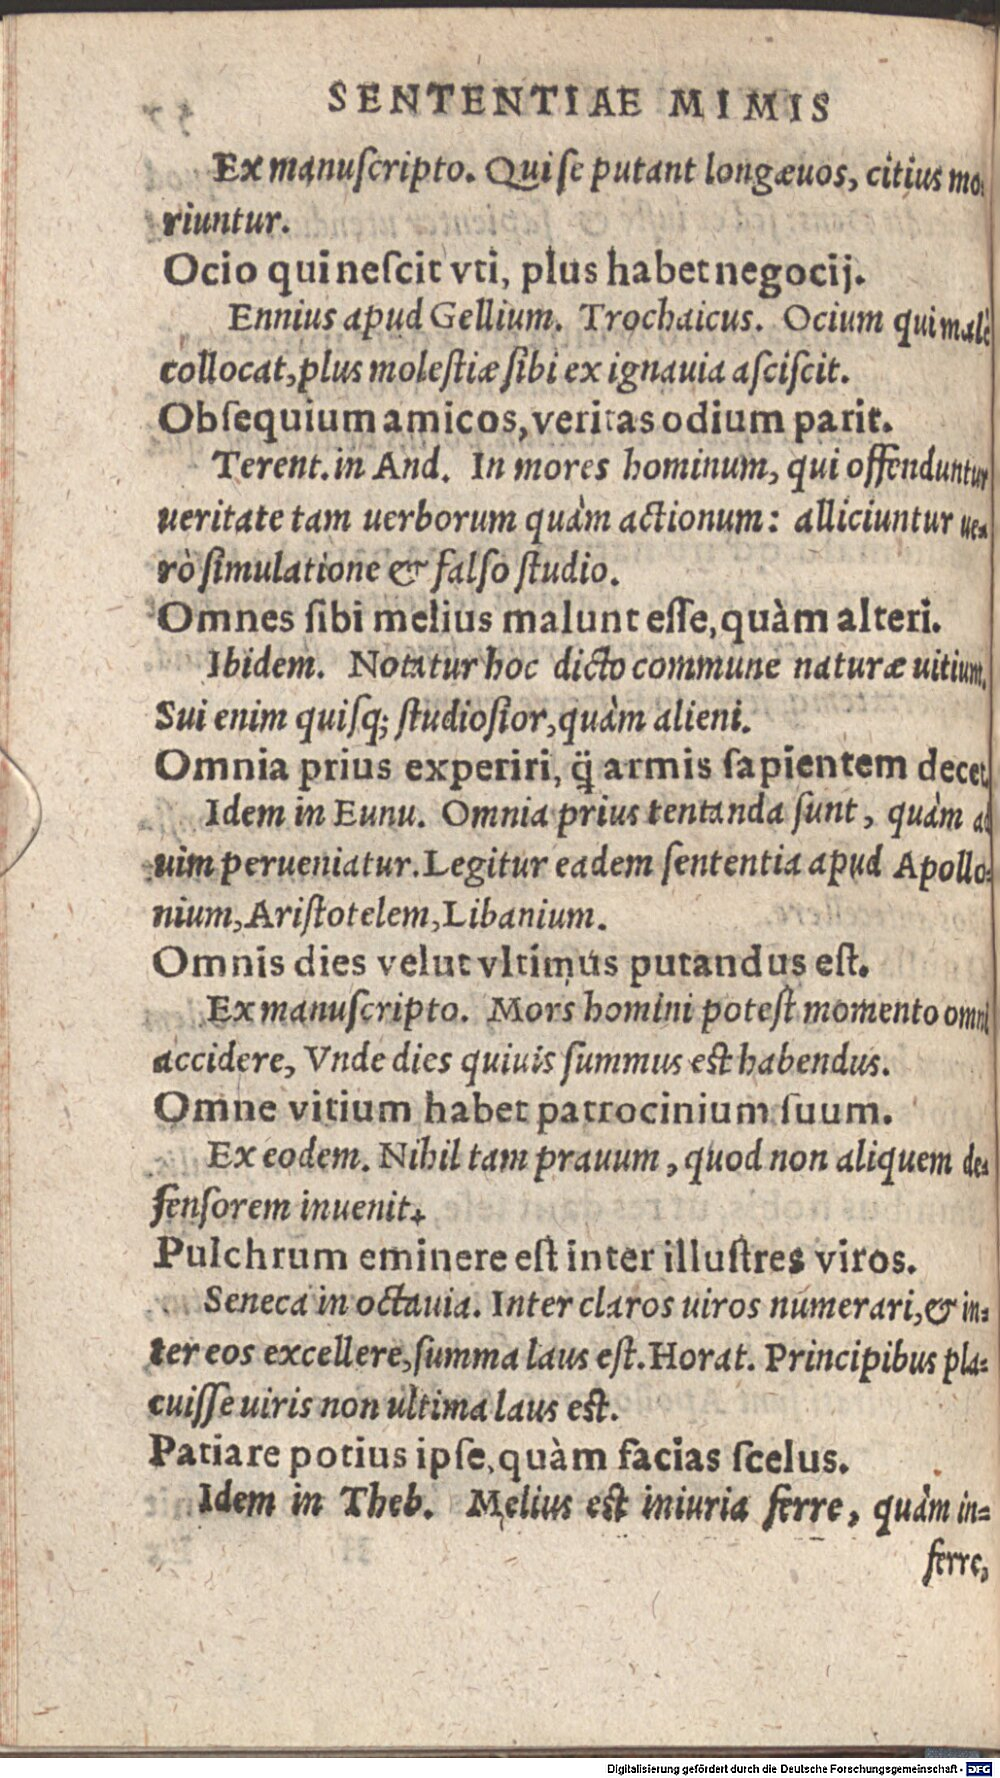 SENTENTIAE MIMIS
Ex manuſcripto. Qui ſe putant longæuos, citius mo⸗
riuntur.
Ocio qui neſcit vti, plus habet negocij.
Ennius apud Gellium. Trochaicus. Ocium qui malè
collocat, plus moleſtiæ ſibi ex ignauia aſciſcit.
Obſequium amicos, veritas odium parit.
Terent. in And. In mores hominum, qui offenduntur
ueritate tam uerborum quàm actionum: alliciuntur ue⸗
rò ſimulatione & falſo ſtudio.
Omnes ſibi melius malunt eſſe, quàm alteri.
Ibidem. Notatur hoc dicto commune naturæ uitium.
Sui enim quiſq; ſtudioſior, quàm alieni.
Omnia prius experiri, q̈̃ armis ſapientem decet.
Idem in Eunu. Omnia prius tentanda ſunt, quàm ad
uim perueniatur. Legitur eadem ſententia apud Apollo⸗
nium, Ariſtotelem, Libanium.
Omnis dies velut vltimus putandus eſt.
Ex manuſcripto. Mors homini poteſt momento omni
accidere, Vnde dies quiuis ſummus eſt habendus.
Omne vitium habet patrocinium ſuum.
Ex eodem. Nihil tam prauum, quod non aliquem de⸗
fenſorem inuenit.
Pulchrum eminere eſt inter illuſtres viros.
Seneca in octauia. Inter claros uiros numerari, & in⸗
ter eos excellere, ſumma laus eſt. Horat. Principibus pla⸗
cuiſſe uiris non ultima laus eſt.
Patiare potius ipſe, quàm facias ſcelus.
Idem in Theb. Melius eſt iniuria ferre, quàm in⸗
ferre,
Digitalisierung gefördert durch die Deutsche Forschungsgemeinschaft - DFG